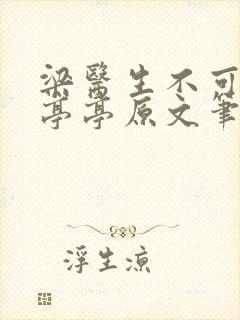 梁醫生不可
亭亭原文筆
浮生涼